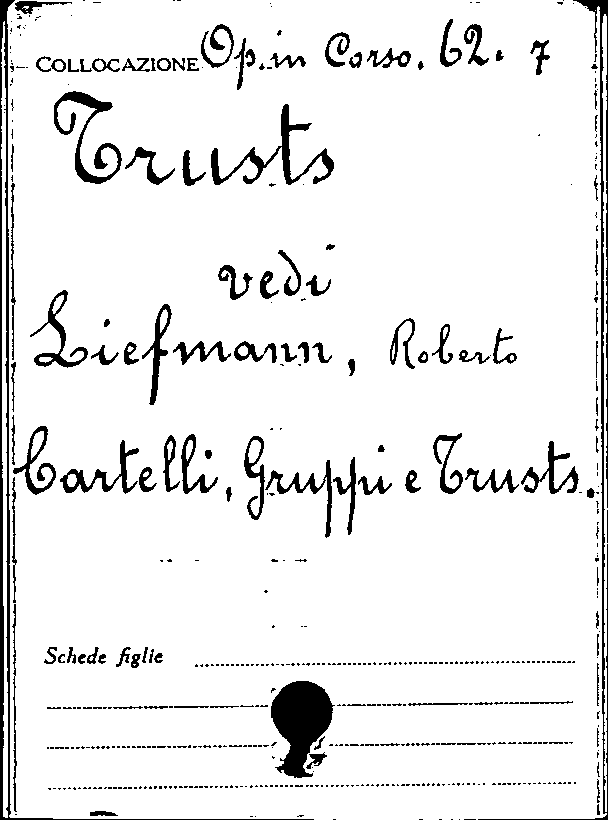 COLLOCAZIONE Op. in Corso. 62. 7
Trusts
vedi
Liefmann, Roberto
Cartelli, Gruppi e Trusts.
Schede figlie